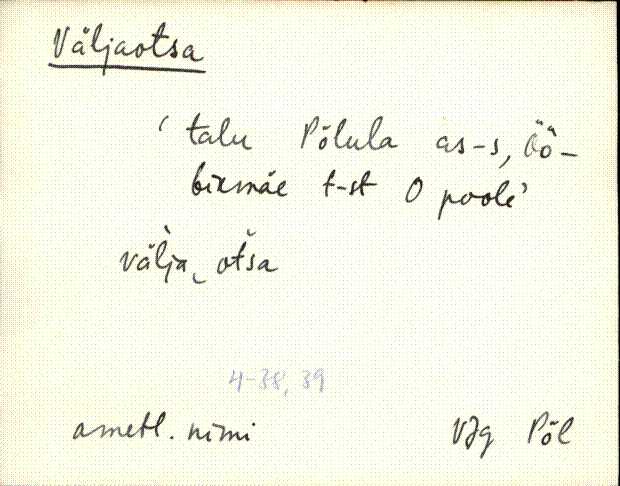 Väljaotsa
‘talu Põlula as-s, Öö-
bikmäe t-st O poole’
vä̀lja‿ot̆sa
4-38, 39
ametl. nimi VJg Põl